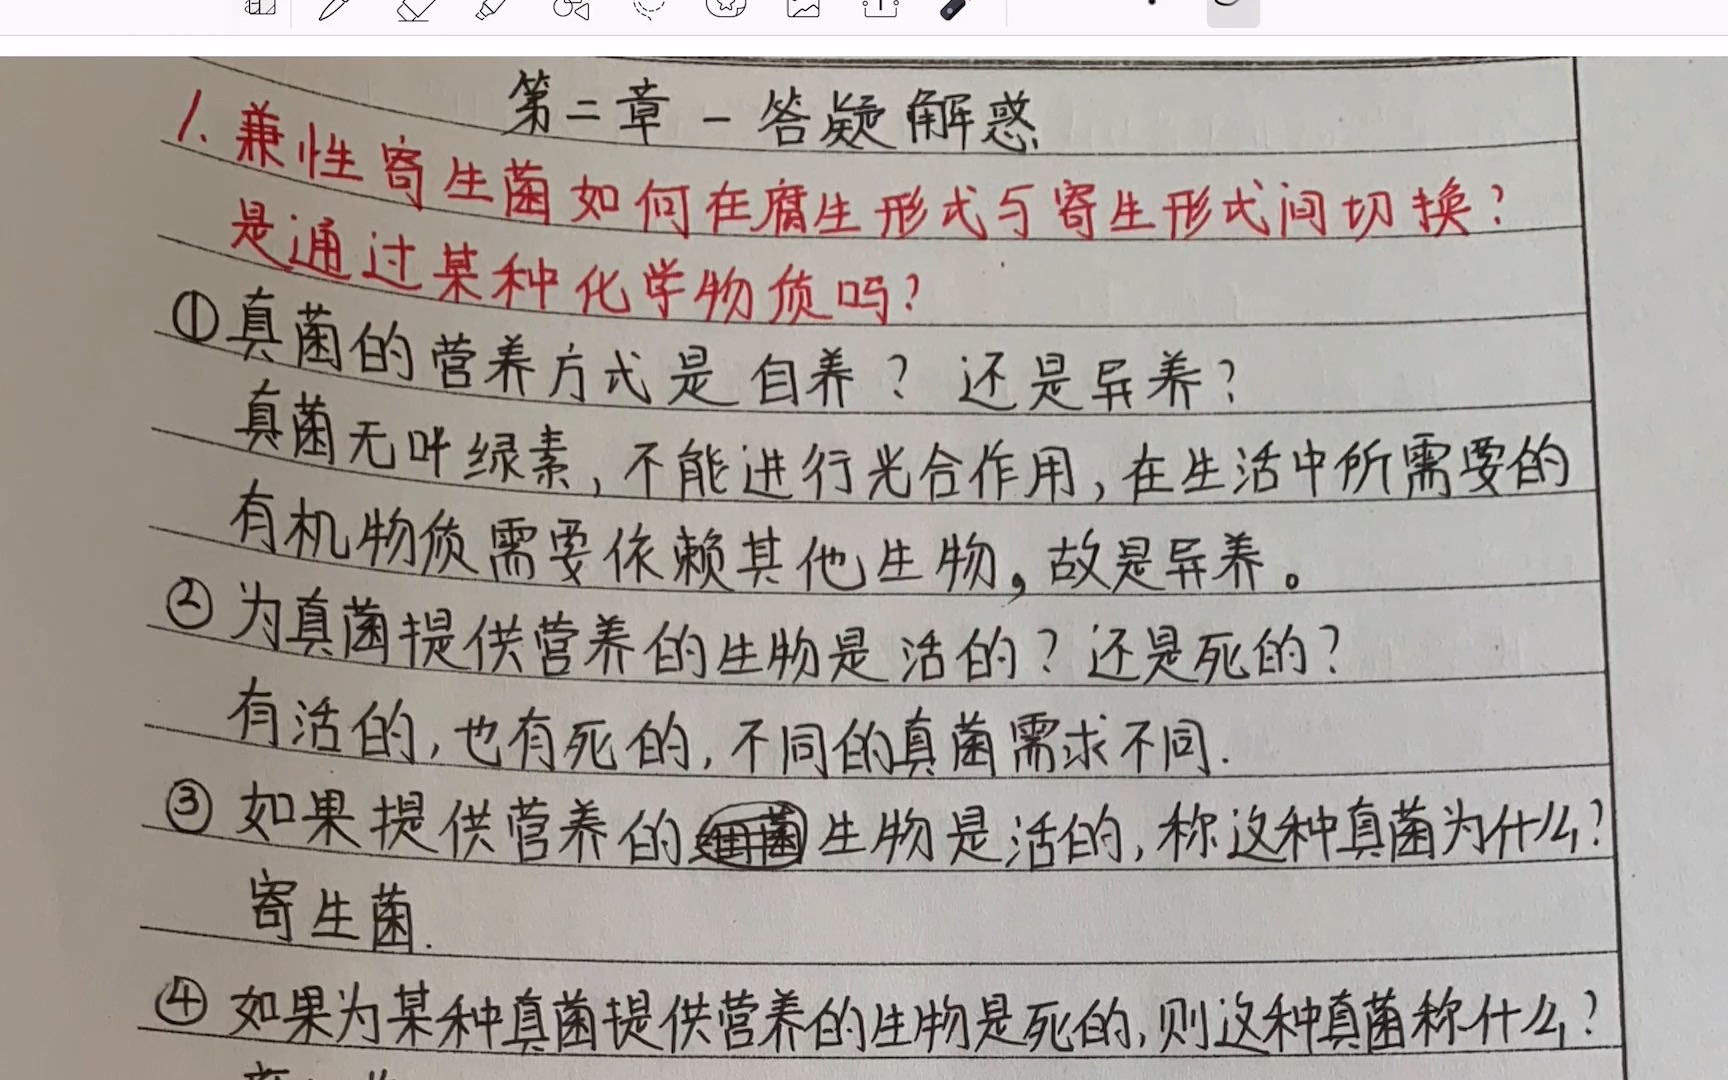 第二章-答疑解惑
1.兼性寄生菌如何在腐生形式与寄生形式间切换?
是通过某种化学物质吗?
①真菌的营养方式是自养?还是异养?
真菌无叶绿素,不能进行光合作用,在生活中所需要的
有机物质需要依赖其他生物,故是异养。
②为真菌提供营养的生物是活的?还是死的?
有活的,也有死的,不同的真菌需求不同.
③如果提供营养的生物是活的,称这种真菌为什么?
寄生菌.
④如果为某种真菌提供营养的生物是死的,则这种真菌称什么?